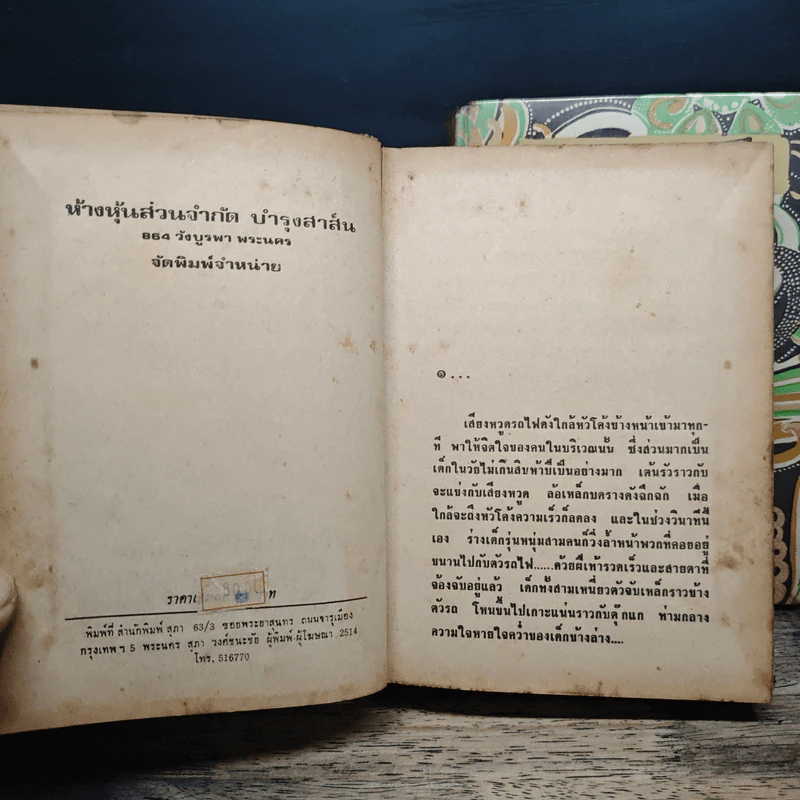 ห้างหุ้นส่วนจำกัด บำรุงสาส์น
864 วังบูรพา พระนคร
จัดพิมพ์จำหน่าย
ราคา
พิมพ์ที่ สำนักพิมพ์ สุภา 63/3 ซอยพระยาสุนทร ถนนจารุเมือง
กรุงเทพฯ 5 พระนคร สุภา วงศ์ชนะชัย ผู้พิมพ์-ผู้โฆษณา 2514
โทร. 516770
๑...
เสียงหวูดรถไฟดังใกล้หัวโค้งข้างหน้าเข้ามาทุก-
ที พาให้จิตใจของคนในบริเวณนั้น ซึ่งส่วนมากเป็น
เด็กในวัยไม่เกินสิบห้าปีเป็นอย่างมาก เต้นรัวราวกับ
จะแข่งกับเสียงหวูด ล้อเหล็กบดรางดังฉึกฉัก เมื่อ
ใกล้จะถึงหัวโค้งความเร็วก็ลดลง และในช่วงวินาทีนี้
เอง ร่างเด็กรุ่นหนุ่มสามคนก็วิ่งล้ำหน้าพวกที่คอยอยู่
ขนานไปกับตัวรถไฟ......ด้วยฝีเท้ารวดเร็วและสายตาที่
จ้องจับอยู่แล้ว เด็กทั้งสามเหนี่ยวตัวจับเหล็กราวข้าง
ตัวรถ โหนขึ้นไปเกาะแน่นราวกับตุ๊กแก ท่ามกลาง
ความใจหายใจคว่ำของเด็กข้างล่าง....